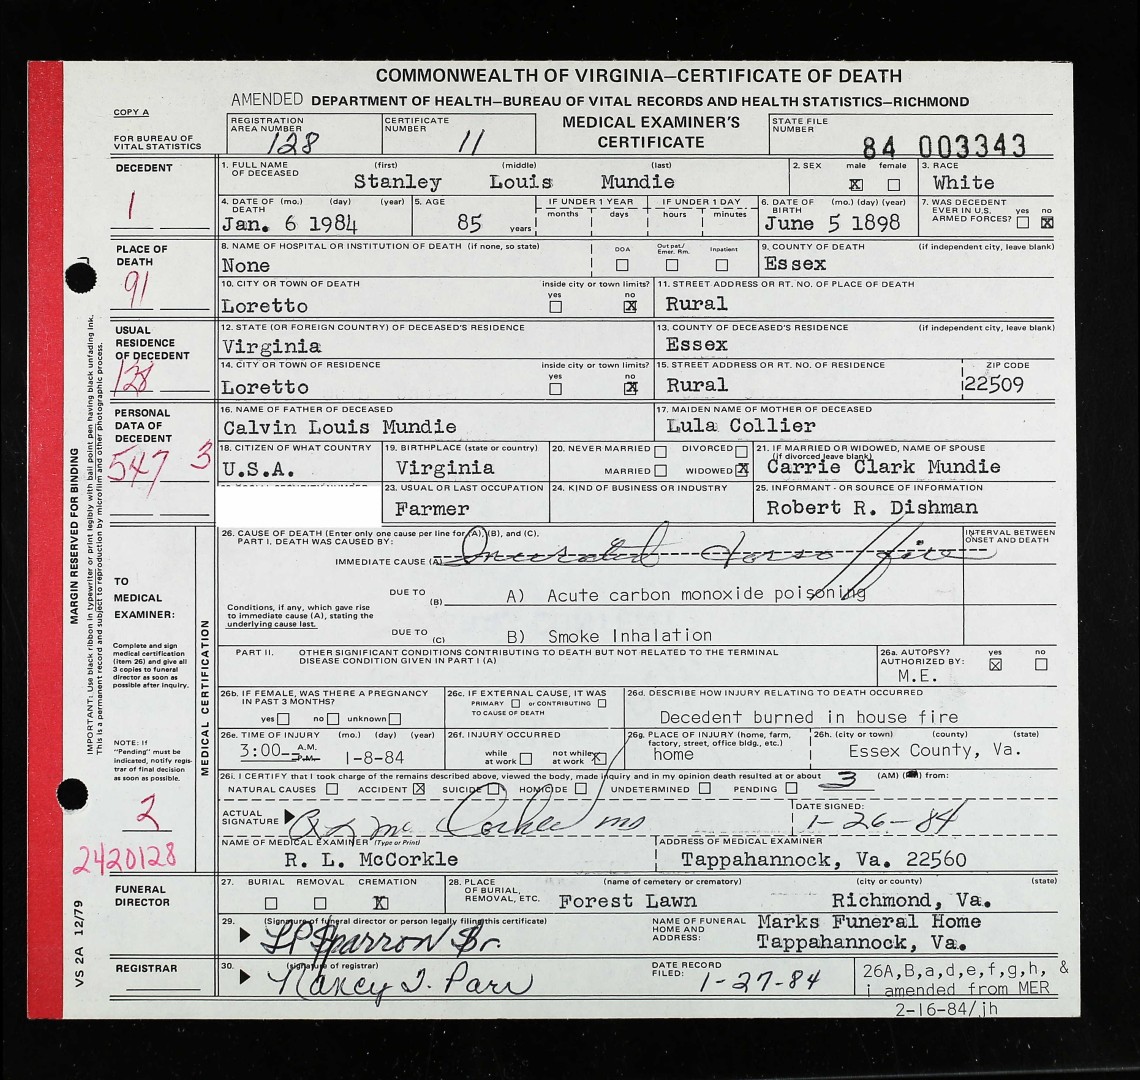 COMMONWEALTH OF VIRGINIA—CERTIFICATE OF DEATH
AMENDED DEPARTMENT OF HEALTH—BUREAU OF VITAL RECORDS AND HEALTH STATISTICS—RICHMOND
COPY A
FOR BUREAU OF VITAL STATISTICS
REGISTRATION AREA NUMBER 128
CERTIFICATE NUMBER 11
MEDICAL EXAMINER'S CERTIFICATE
STATE FILE NUMBER 84 003343
DECEDENT
1
1. FULL NAME OF DECEASED (first) (middle) (last)
Stanley Louis Mundie
2. SEX male female
X
3. RACE
White
4. DATE OF DEATH (mo.) (day) (year)
Jan. 6 1984
5. AGE
85 years
IF UNDER 1 YEAR
months days
IF UNDER 1 DAY
hours minutes
6. DATE OF BIRTH (mo.) (day) (year)
June 5 1898
7. WAS DECEDENT EVER IN U.S. ARMED FORCES? yes no
X
PLACE OF DEATH
91
8. NAME OF HOSPITAL OR INSTITUTION OF DEATH (if none, so state)
None
DOA Out pat./ Emer. Rm. Inpatient
9. COUNTY OF DEATH (if independent city, leave blank)
Essex
10. CITY OR TOWN OF DEATH inside city or town limits? yes no
Loretto X
11. STREET ADDRESS OR RT. NO. OF PLACE OF DEATH
Rural
USUAL RESIDENCE OF DECEDENT
128
12. STATE (OR FOREIGN COUNTRY) OF DECEASED'S RESIDENCE
Virginia
13. COUNTY OF DECEASED'S RESIDENCE (if independent city, leave blank)
Essex
14. CITY OR TOWN OF RESIDENCE inside city or town limits? yes no
Loretto X
15. STREET ADDRESS OR RT. NO. OF RESIDENCE
Rural
ZIP CODE
22509
PERSONAL DATA OF DECEDENT
547 3
16. NAME OF FATHER OF DECEASED
Calvin Louis Mundie
17. MAIDEN NAME OF MOTHER OF DECEASED
Lula Collier
18. CITIZEN OF WHAT COUNTRY
U.S.A.
19. BIRTHPLACE (state or country)
Virginia
20. NEVER MARRIED DIVORCED
MARRIED WIDOWED X
21. IF MARRIED OR WIDOWED, NAME OF SPOUSE (if divorced leave blank)
Carrie Clark Mundie
23. USUAL OR LAST OCCUPATION
Farmer
24. KIND OF BUSINESS OR INDUSTRY
25. INFORMANT - OR SOURCE OF INFORMATION
Robert R. Dishman
MARGIN RESERVED FOR BINDING
IMPORTANT: Use black ribbon in typewriter or print legibly with ball point pen having black unfading ink.
This is a permanent record and subject to reproduction by microfilm and other photographic process.
VS 2A 12/79
TO MEDICAL EXAMINER:
Complete and sign medical certification (item 26) and give all 3 copies to funeral director as soon as possible after inquiry.
NOTE: If "Pending" must be indicated, notify registrar of final decision as soon as possible.
2
2420128
MEDICAL CERTIFICATION
26. CAUSE OF DEATH (Enter only one cause per line for (A), (B), and (C).
PART I. DEATH WAS CAUSED BY:
IMMEDIATE CAUSE (A) fire
INTERVAL BETWEEN ONSET AND DEATH
DUE TO (B) A) Acute carbon monoxide poisoning
Conditions, if any, which gave rise to immediate cause (A), stating the underlying cause last.
DUE TO (C) B) Smoke Inhalation
PART II. OTHER SIGNIFICANT CONDITIONS CONTRIBUTING TO DEATH BUT NOT RELATED TO THE TERMINAL DISEASE CONDITION GIVEN IN PART I (A)
26a. AUTOPSY? AUTHORIZED BY: yes no
X
M.E.
26b. IF FEMALE, WAS THERE A PREGNANCY IN PAST 3 MONTHS?
yes no unknown
26c. IF EXTERNAL CAUSE, IT WAS
PRIMARY or CONTRIBUTING
TO CAUSE OF DEATH
26d. DESCRIBE HOW INJURY RELATING TO DEATH OCCURRED
Decedent burned in house fire
26e. TIME OF INJURY (mo.) (day) (year)
3:00 A.M. P.M. 1-8-84
26f. INJURY OCCURRED
while at work not while at work X
26g. PLACE OF INJURY (home, farm, factory, street, office bldg., etc.)
home
26h. (city or town) (county) (state)
Essex County, Va.
26i. I CERTIFY that I took charge of the remains described above, viewed the body, made inquiry and in my opinion death resulted at or about 3 (AM) from:
NATURAL CAUSES ACCIDENT X SUICIDE HOMICIDE UNDETERMINED PENDING
ACTUAL SIGNATURE R L McCorkle MD
DATE SIGNED: 1-26-84
NAME OF MEDICAL EXAMINER (Type or Print)
R. L. McCorkle
ADDRESS OF MEDICAL EXAMINER
Tappahannock, Va. 22560
FUNERAL DIRECTOR
27. BURIAL REMOVAL CREMATION
X
28. PLACE OF BURIAL, REMOVAL, ETC. (name of cemetery or crematory) (city or county) (state)
Forest Lawn Richmond, Va.
29. (Signature of funeral director or person legally filing this certificate)
LP Sparrow Sr.
NAME OF FUNERAL HOME AND ADDRESS:
Marks Funeral Home
Tappahannock, Va.
REGISTRAR
30. (signature of registrar)
Nancy T. Parr
DATE RECORD FILED: 1-27-84
26A,B,a,d,e,f,g,h, &
i amended from MER
2-16-84/jh